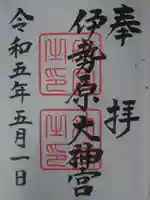 奉拝
伊勢原大神宮
令和五年五月一日